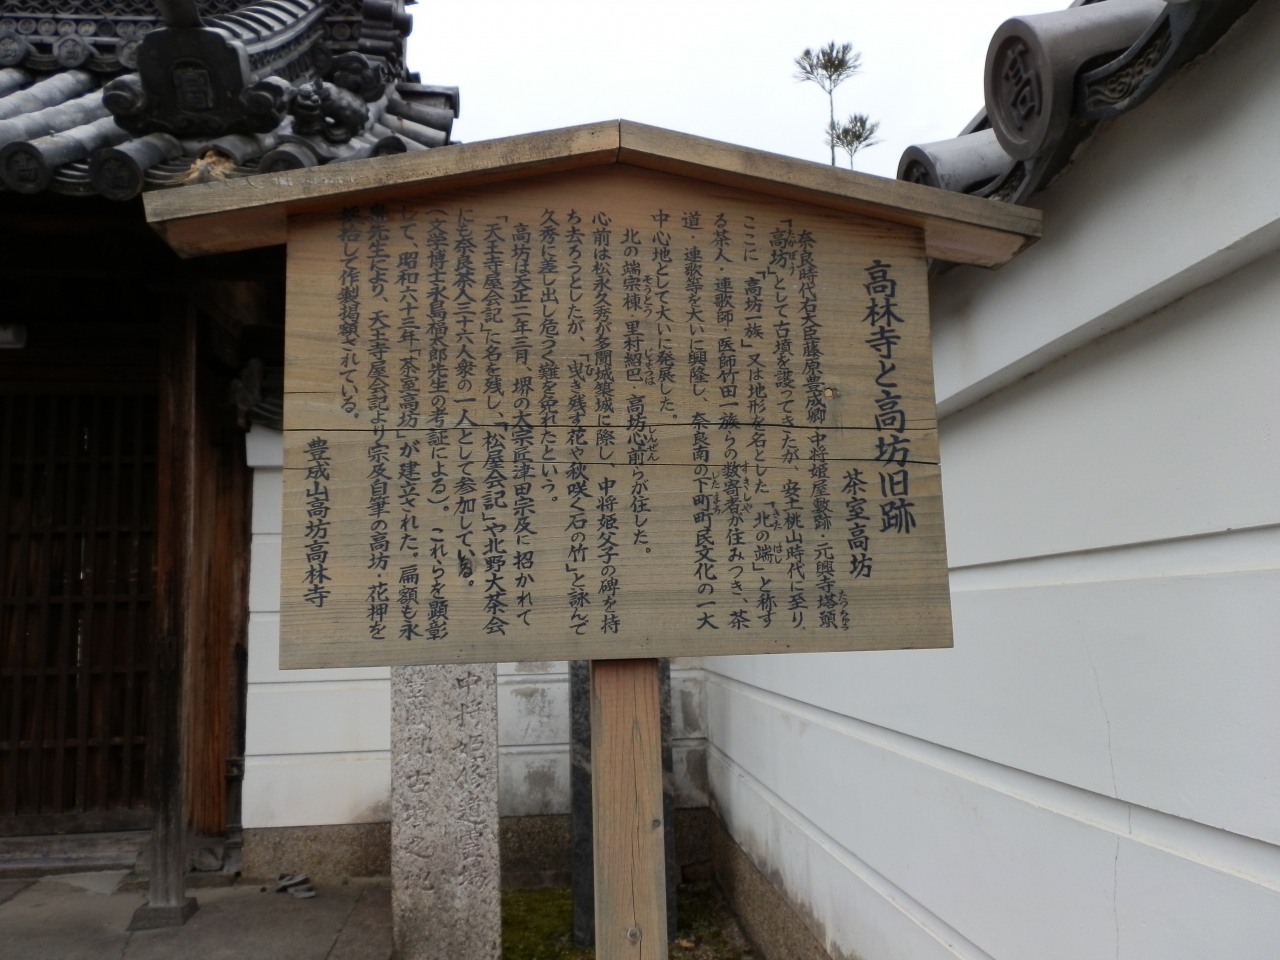 高林寺と高坊旧跡
茶室高坊
奈良時代右大臣藤原豊成卿・中将姫屋敷跡・元興寺塔頭
「高坊」として古墳を護ってきたが、安土桃山時代に至り、
ここに「高坊一族」又は地形を名とした「北の端」と称す
る茶人・連歌師・医師竹田一族らの数寄者が住みつき、茶
道・連歌等を大いに興隆し、奈良南の下町町民文化の一大
中心地として大いに発展した。
北の端宗棟・里村紹巴・高坊心前らが住した。
心前は松永久秀が多聞城築城に際し、中将姫父子の碑を持
ち去ろうとしたが、「曳き残す花や秋咲く石の竹」と詠んで
久秀に差し出し危うく難を免れたという。
高坊は天正二年三月、堺の大宗匠津田宗及に招かれて
「天王寺屋会記」に名を残し、「松屋会記」や北野大茶会
にも奈良茶人三十六人衆の一人として参加している。
(文学博士永島福太郎先生の考証による)。これらを顕彰
して、昭和六十三年「茶室高坊」が建立された。扁額も永
島先生により、天王寺屋会記より宗及自筆の高坊・花押を
採拾して作製掲額されている。
豊成山高坊高林寺
高
中将姫修道霊場
古墳之地